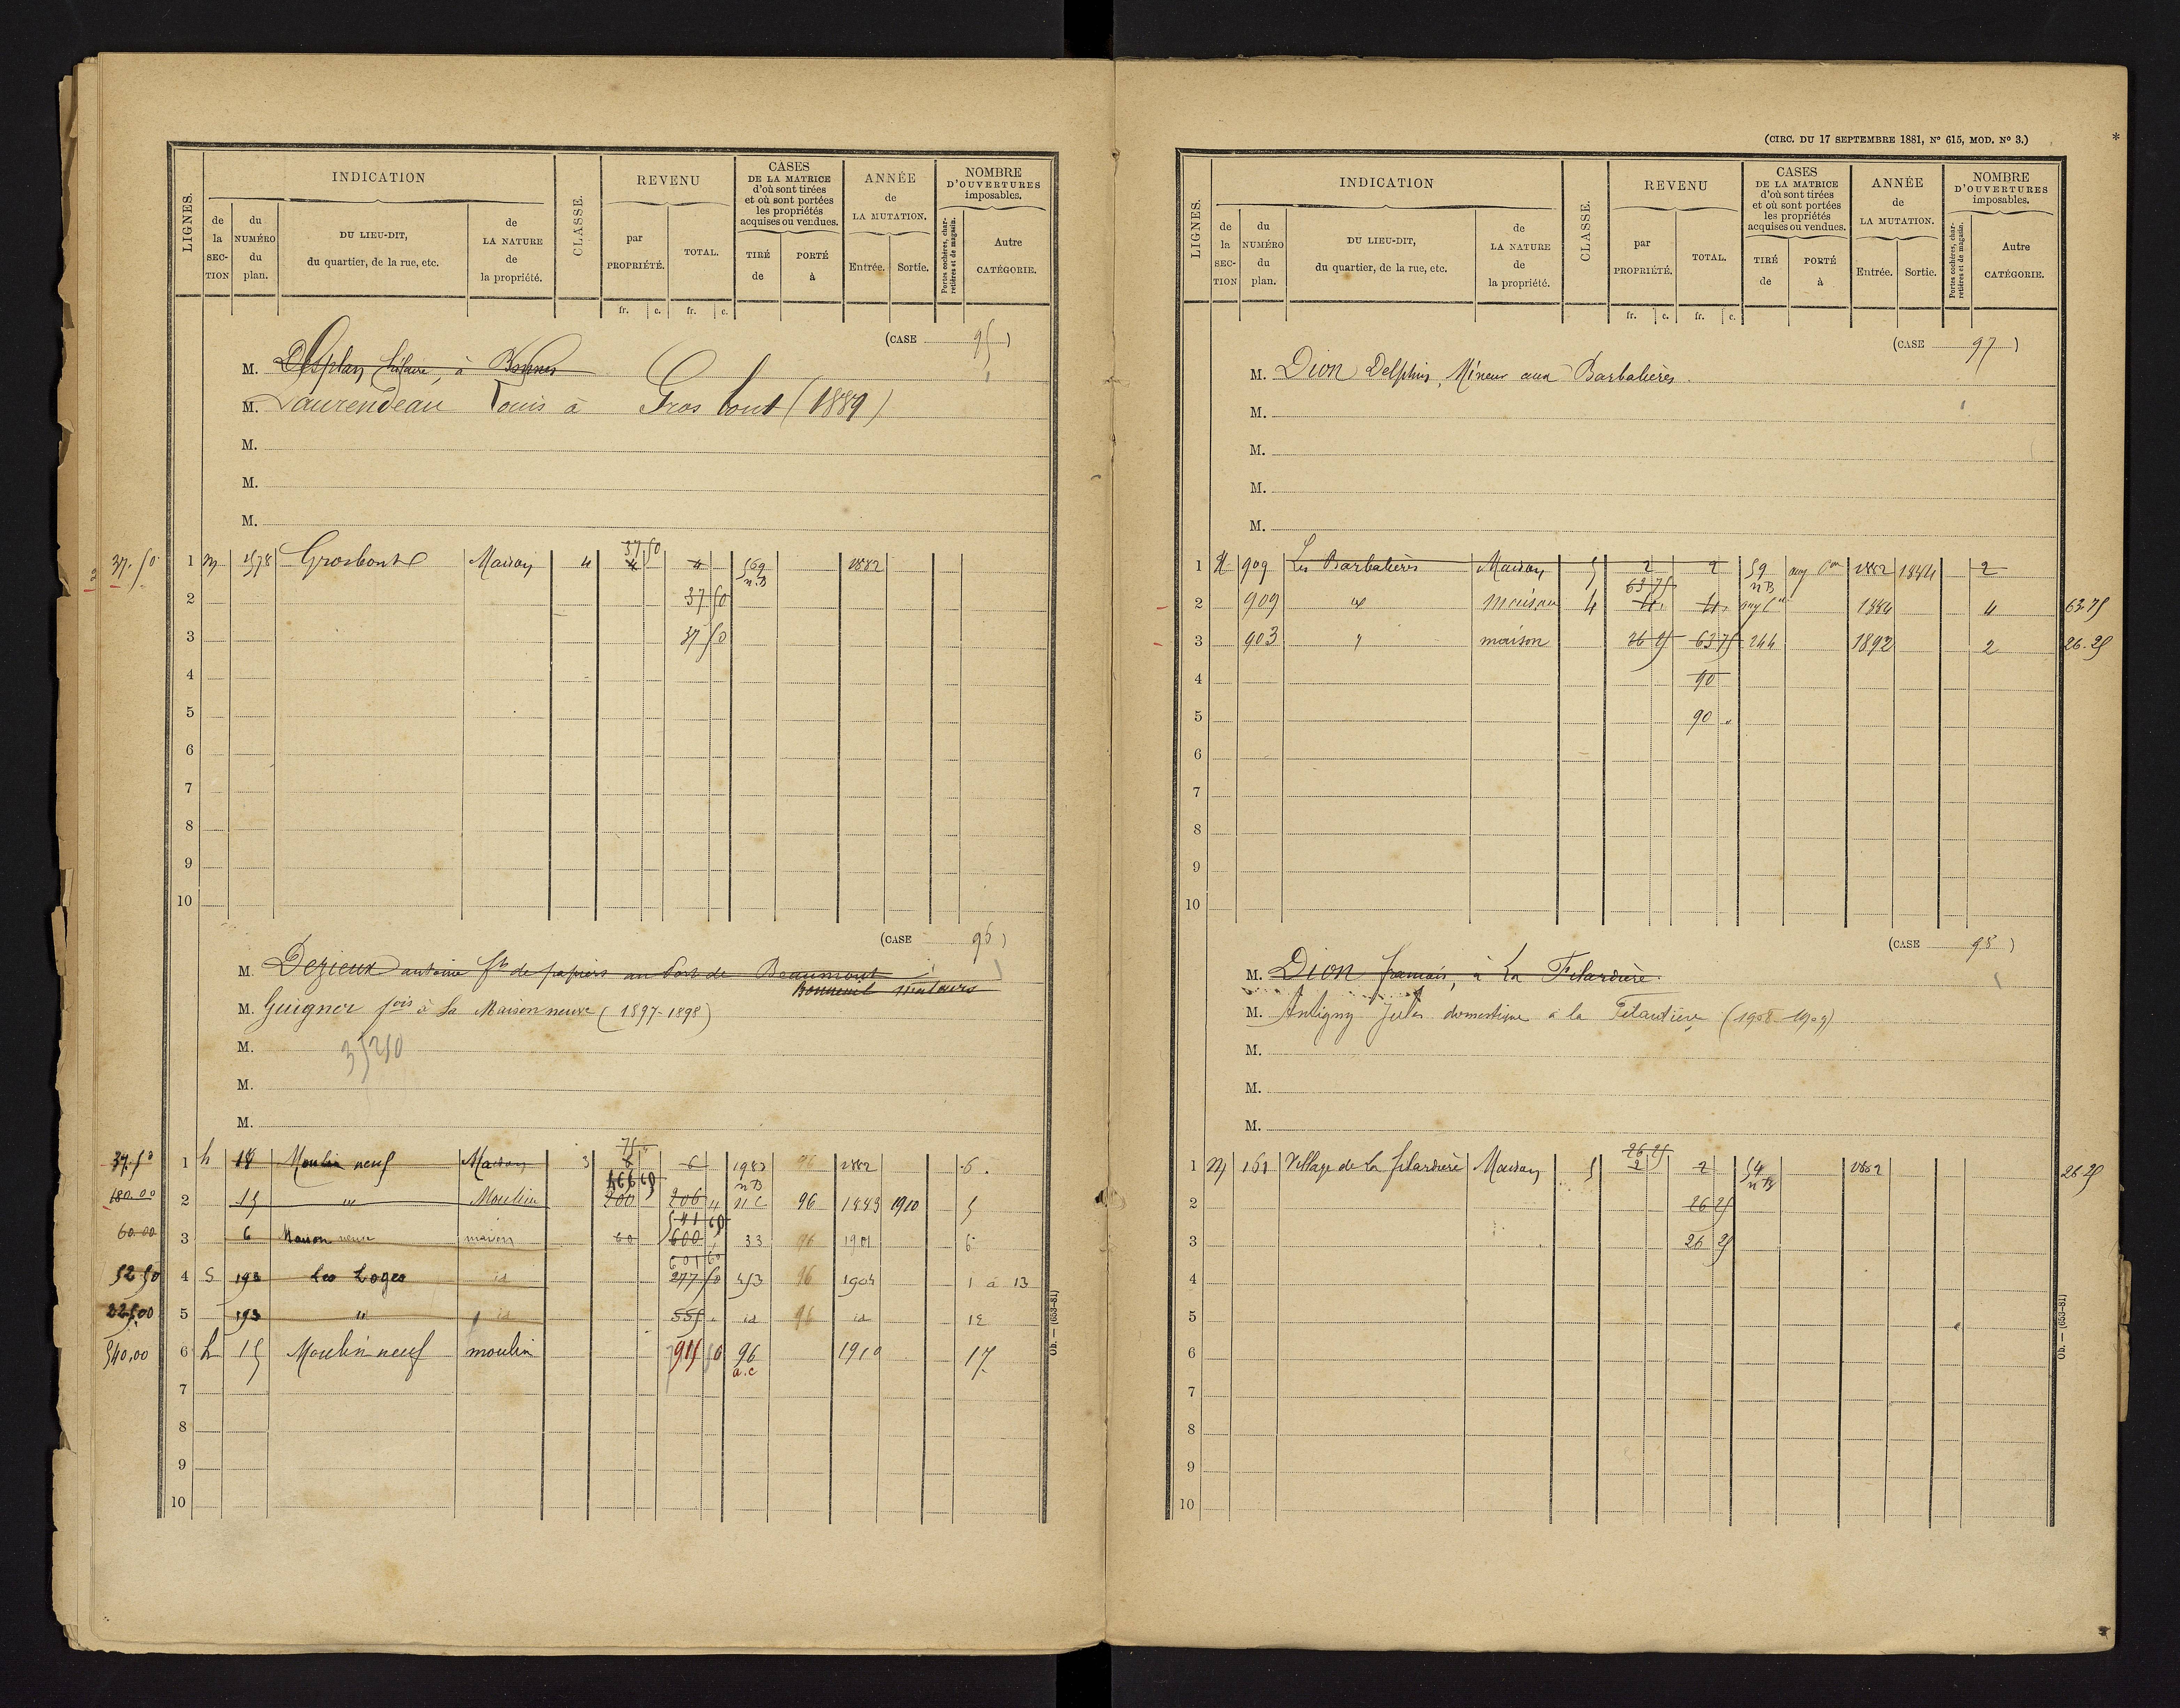 LIGNES.
INDICATION
de la SECTION
du NUMÉRO du plan.
DU LIEU-DIT, du quartier, de la rue, etc.
de LA NATURE de la propriété.
CLASSE.
REVENU
par PROPRIÉTÉ.
TOTAL.
CASES DE LA MATRICE d'où sont tirées et où sont portées les propriétés acquises ou vendues.
TIRÉ de
PORTÉ à
ANNÉE de LA MUTATION.
Entrée.
Sortie.
NOMBRE D'OUVERTURES imposables.
Portes cochères, charretières et de magasin.
Autre CATÉGORIE.
fr. c. fr. c.
(CASE 95)
M. Desplan hilaire, à Bonnes
M. Laurendeau Louis à Gros bout (1889)
M.
M.
M.
37 50
37.50 1 M 1578 Grosbout Maison 4 4 4 569 n.B 1882
2 37 50
3 37 50
4
5
6
7
8
9
10
(CASE 96)
M. Dezieux antoine ft de papiers au Port de Beaumont
Bonneuil Matours
M. Guigner fois à la Maison neuve (1897-1898)
M. 35250
M.
M.
75
37.50 1 h 18 Moulin neuf Maison 3 6 6 1982 n B 96 1882 6.
466 69
180.00 2 15 " Moulin 200 206 n C 96 1883 1910 5
541 69
60.00 3 6 Maison neuve maison 60 600 33 96 1901 6
601 60
52 50 4 S 193 Les Loges id 277 50 453 96 1904 1 à 13
225.00 5 193 " id 555 id 96 id 12
540,00 6 h 15 Moulin neuf moulin 915 50 96 a.c 1910 17.
7
8
9
10
Ob. — (653-81)
(CIRC. DU 17 SEPTEMBRE 1881, N° 615, MOD. N° 3.)
LIGNES.
INDICATION
de la SECTION
du NUMÉRO du plan.
DU LIEU-DIT, du quartier, de la rue, etc.
de LA NATURE de la propriété.
CLASSE.
REVENU
par PROPRIÉTÉ.
TOTAL.
CASES DE LA MATRICE d'où sont tirées et où sont portées les propriétés acquises ou vendues.
TIRÉ de
PORTÉ à
ANNÉE de LA MUTATION.
Entrée.
Sortie.
NOMBRE D'OUVERTURES imposables.
Portes cochères, charretières et de magasin.
Autre CATÉGORIE.
fr. c. fr. c.
(CASE 97)
M. Dion Delphin, Mineur aux Barbalières.
M.
M.
M.
M.
1 H 909 Les Barbalières Maison 5 2 2 59 n B aug on 1882 1884 2
63 75
2 909 id maison 4 4 4 aug on 1884 4 63.75
3 903 " maison 26 25 63 75 244 1892 2 26.25
4 90
5 90 "
6
7
8
9
10
(CASE 98)
M. Dion francois, à La Filardière.
M. Antigny Jules domestique à la Pilautière (1908-1909)
M.
M.
M.
26 25
1 M 161 Village de la filardière Maison 5 2 2 54 n B 1882 26.25
2 26 25
3 26 25
4
5
6
7
8
9
10
Ob. — (653-81)